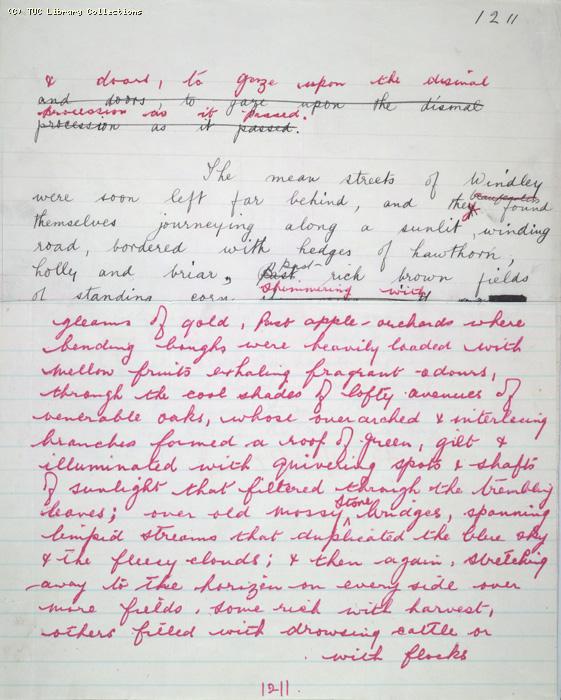 (C) TUC Library Collections
1211
& doors, to gaze upon the dismal
and doors, to gaze upon the dismal
procession as it passed.
procession as it passed.
The mean streets of Windley
were soon left far behind, and they found
themselves journeying along a sunlit, winding
road, bordered with hedges of hawthorn,
holly and briar, Past past rich brown fields
of standing corn shimmering with
gleams of gold, past apple-orchards where
bending boughs were heavily loaded with
mellow fruits exhaling fragrant odours,
through the cool shades of lofty avenues of
venerable oaks, whose overarched & interlacing
branches formed a roof of green, gilt &
illuminated with quivering spots & shafts
of sunlight that filtered through the trembling
leaves; over old mossy stone bridges, spanning
limpid streams that duplicated the blue sky
& the fleecy clouds; & then again, stretching
away to the horizon on every side over
more fields, some rich with harvest,
others filled with drowsing cattle or
with flocks
1211.